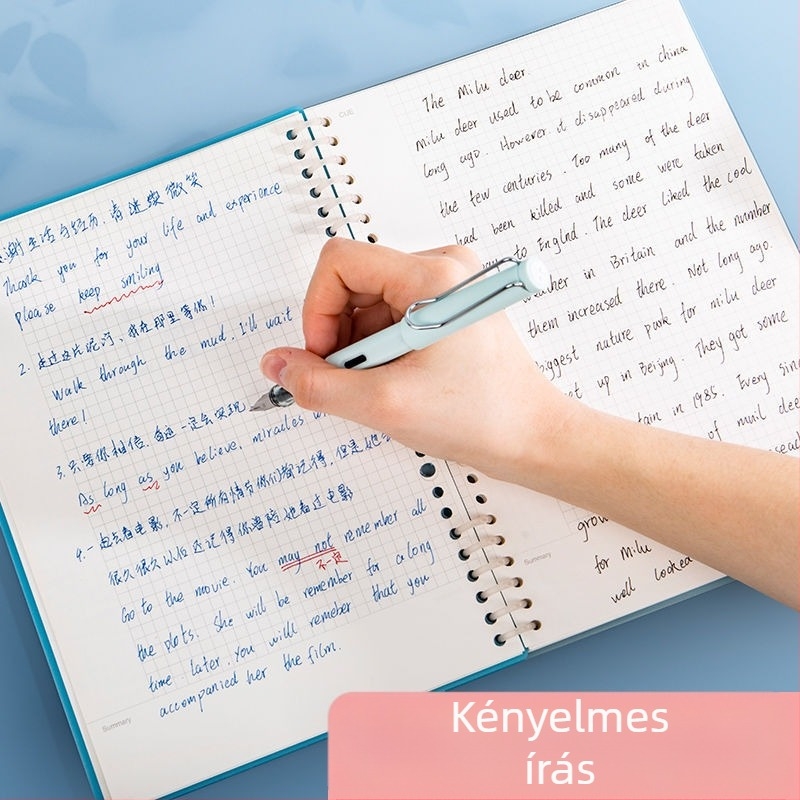 谢生活与经历,请继续微笑
Thank you for your life and experience
please keep smiling
2. 走过这片泥泞、我在那里等你!
Walk through the mud, I'll wait
there!
3. 只要你相信,奇迹一定会实现
As long as you believe, miracles
4. 一起去看电影,不一定所有情节你们都记得,但是她会
很久很久以后还记得你曾陪她看过电影
Go to the movie. You may not remember all
不一定
the plots. She will be remember for a long
time later. You willl remeber that you
accompanied her the film.
Summary
CUE
The Milu deer.
Milu deer used to be common in china
long ago. However. it disappeared during
the few centuries. Too many of the deer
had been killed and some were taken
to Englnd. The deer liked the cool
weather in Britain and the number
them increased there. Not long ago.
biggest nature park for milu deer
set up in Beijing. They got some
in 1985. Every
of muil deer
for Milu
well looked
Summary
Kényelmes
írás